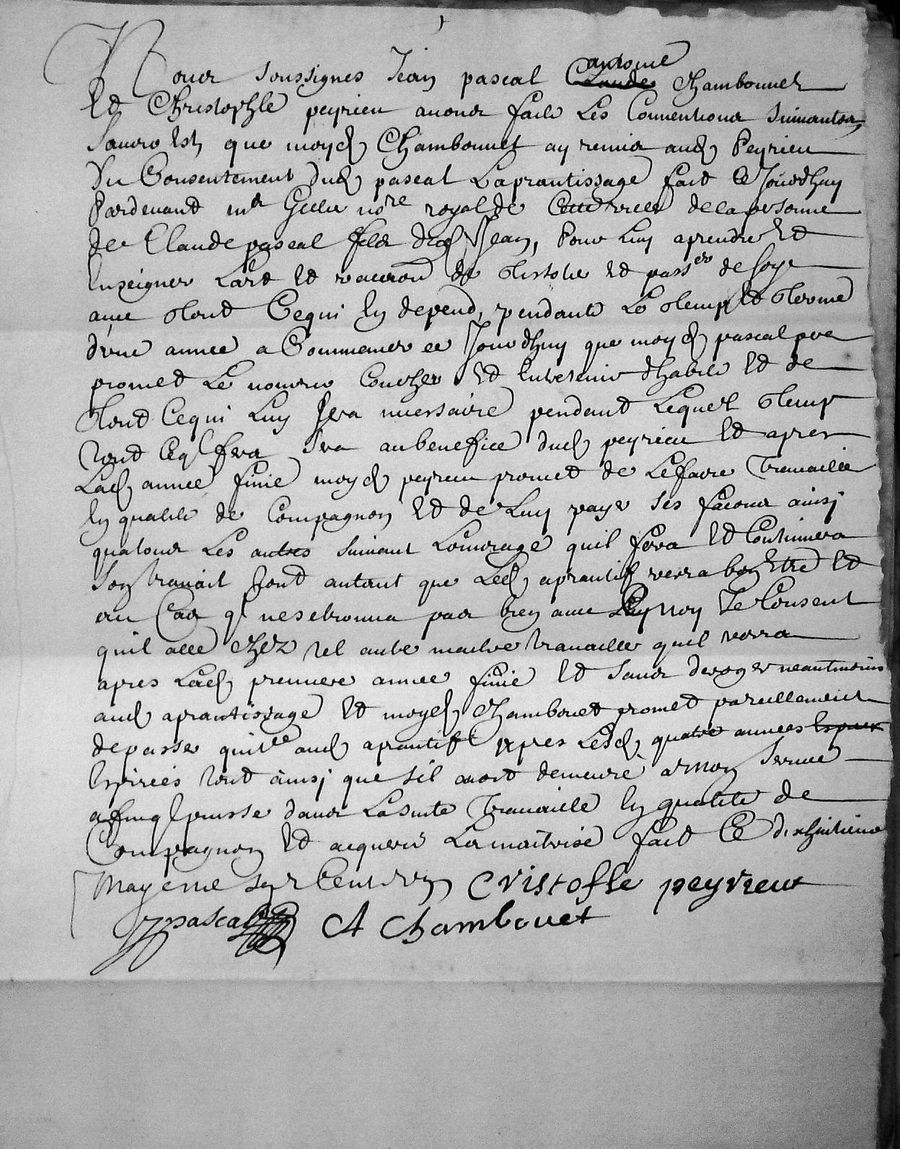 Nous soussignes Jean pascal antoine Claude Chambonnet
Et Christophle peyrieu avons fait Les Conventions suivantes
Savoir Est que moyd Chambonnet ay remis aud Peyrieu
Du Consentement dud pascal Laprantissage fait Ce Jourdhuy
Pardevant me nore royal de Cette de la personne
de Claude pascal fils dud Jean, Pour Luy aprendre Et
Enseigner Lart Et de Et passer de soye
avec tout Cequi En depend, pendant Le temp Et terme
d'une année a Commencer ce Jourdhuy que moyd pascal pere
promet Le nourrir Coucher Et Entretenir dhabits Et de
tout Cequi Luy sera necessaire pendant Lequel temp
tout Ceql fera sera aubenefice dud peyrieu Et apres
Lad année finie moyd peyrieu promet de Lefaire Travailler
En qualité de Compagnon Et de Luy payer ses facons ainsy
qua tous Les autres suivant Louvrage quil fera Et Continuera
Son travail tout autant que Led aprantif verra bon Etre Et
au Cas ql nesetrouva pas bien avec Luy Je Consent
quil alle chez tel autre maitre travaille quil verra
apres Lad premiere année finie Et sans deroger neantmoins
aud aprantissage Et moyd Chambouet promet pareillement
depasser quitce aud aprantif apres Lesd quatre années Expirer
Expirées tout ainsy que sil avoit demeuré a mon service
afinql puisse dans Lasuite Travaille En qualité de
Compagnon Et acquerir La maitrise fait Ce dixhuitieme
May Cristofle peyrieut
pascal A Chambouet